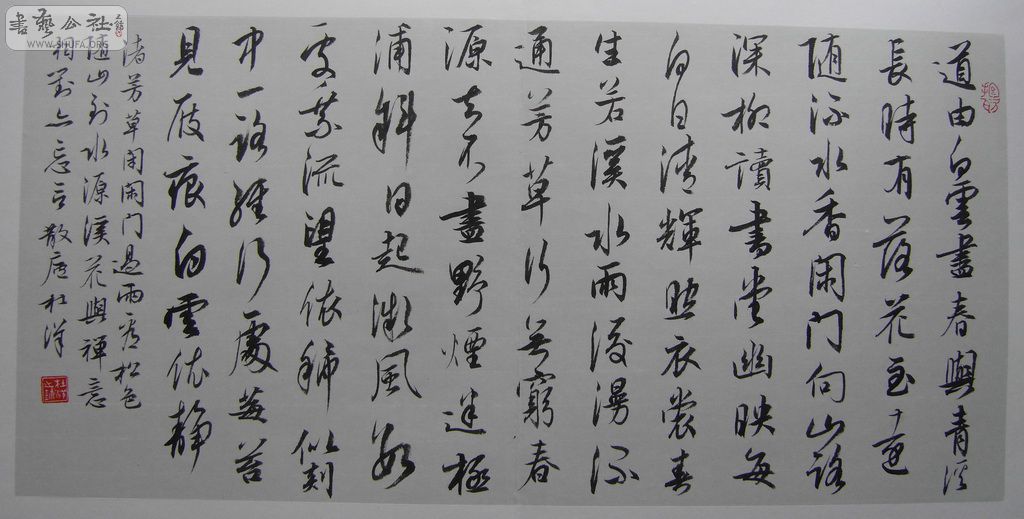 書藝公社
WWW.SHUFA.ORG
道由白雲盡春與青溪
長時有落花至遠
隨流水香閑門向山路
深柳讀書堂幽映每
白日清輝照衣裳春
生若溪水雨後漫流
通芳草行無窮春
源去不盡野煙迷極
浦斜日起微風數
處乘流望依稀似剡
中一路經行處莓苔
見屐痕白雲依靜
渚芳草閉閑門過雨看松色
隨山到水源溪花與禪意
相對亦忘言 散 杜洋